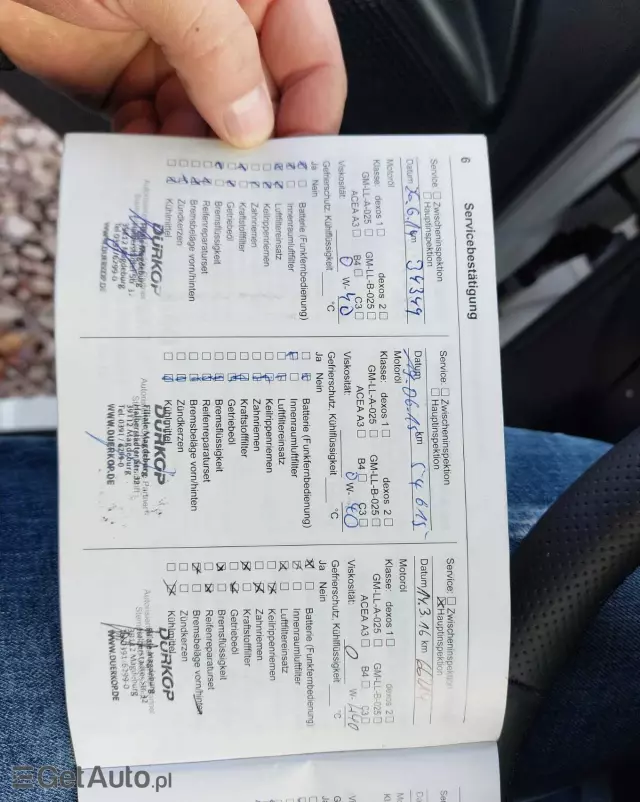 6
Servicebestätigung
Service: Zwischeninspektion
Hauptinspektion
Datum 26.6.14 km 34349
Motoröl
Klasse: dexos 1 dexos 2
GM-LL-A-025 GM-LL-B-025
ACEA A3 B4 C3
Viskosität: 0 W- 40
Gefrierschutz, Kühlflüssigkeit °C
Ja Nein
Batterie (Funkfernbedienung)
Innenraumluftfilter
Luftfiltereinsatz
Keilrippenriemen
Zahnriemen
Kraftstofffilter
Getriebeöl
Bremsflüssigkeit
Reifenreparaturset
Bremsbeläge vorn/hinten
Zündkerzen
Kühlmittel
DÜRKOP
WWW.DUERKOP.DE
Service: Zwischeninspektion
Hauptinspektion
Datum 19.06.15 km 54615
Motoröl
Klasse: dexos 1 dexos 2
GM-LL-A-025 GM-LL-B-025
ACEA A3 B4 C3
Viskosität: 0 W- 40
Gefrierschutz, Kühlflüssigkeit °C
Ja Nein
Batterie (Funkfernbedienung)
Innenraumluftfilter
Luftfiltereinsatz
Keilrippenriemen
Zahnriemen
Kraftstofffilter
Getriebeöl
Bremsflüssigkeit
Reifenreparaturset
Bremsbeläge vorn/hinten
Zündkerzen
Kühlmittel
DÜRKOP
Filiale Magdeburg
39112 Magdeburg
WWW.DUERKOP.DE
Service: Zwischeninspektion
Hauptinspektion
Datum 11.3.16 km
Motoröl
Klasse: dexos 1 dexos 2
GM-LL-A-025 GM-LL-B-025
ACEA A3 B4 C3
Viskosität: 0 W- 40
Gefrierschutz, Kühlflüssigkeit °C
Ja Nein
Batterie (Funkfernbedienung)
Innenraumluftfilter
Luftfiltereinsatz
Keilrippenriemen
Zahnriemen
Kraftstofffilter
Getriebeöl
Bremsflüssigkeit
Reifenreparaturset
Bremsbeläge vorn/hinten
Zündkerzen
Kühlmittel
DÜRKOP
WWW.DUERKOP.DE
GetAuto.pl